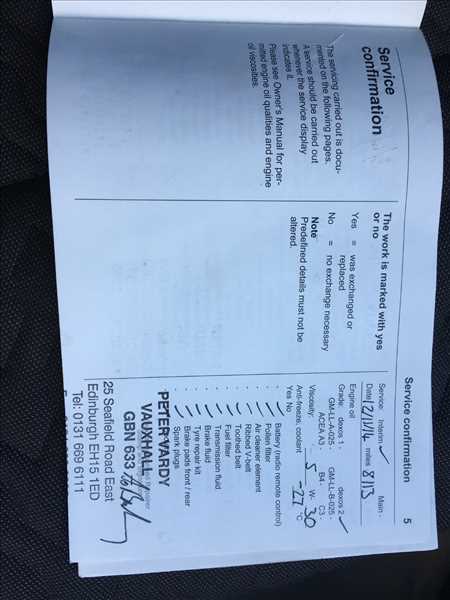 Service confirmation 5
Service
confirmation
The servicing carried out is docu-
mented on the following pages.
A service should be carried out
whenever the service display
indicates it.
Please see Owner's Manual for per-
mitted engine oil qualities and engine
oil viscosities.
The work is marked with yes
or no
Yes = was exchanged or
replaced
No = no exchange necessary
Note
Predefined details must not be
altered.
Service: Interim ✓ Main -
Date 12/11/14 miles 8113
Engine oil
Grade: dexos 1 - dexos 2 ✓
GM-LL-A-025 - GM-LL-B-025 -
ACEA A3 - B4 - C3
Viscosity: 5 W- 30
Anti-freeze, coolant -27 °C
Yes No
Battery (radio remote control)
Pollen filter
Air cleaner element
Ribbed V-belt
Toothed belt
Fuel filter
Transmission fluid
Brake fluid
Tyre repair kit
Brake pads front / rear
Spark plugs
PETER VARDY
VAUXHALL
GBN 633
25 Seafield Road East
Edinburgh EH15 1ED
Tel: 0131 669 6111